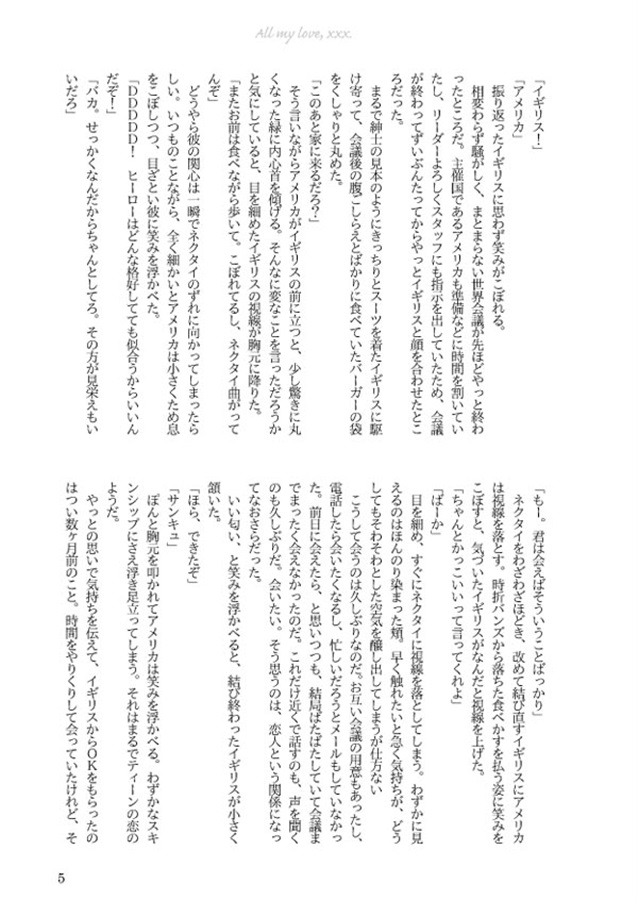 All my love, xxx.
「イギリス！」
「アメリカ」
　振り返ったイギリスに思わず笑みがこぼれる。
　相変わらず騒がしく、まとまらない世界会議が先ほどやっと終わ
ったところだ。主催国であるアメリカも準備などに時間を割いてい
たし、リーダーよろしくスタッフにも指示を出していたため、会議
が終わってずいぶんたってからやっとイギリスと顔を合わせたとこ
ろだった。
　まるで紳士の見本のようにきっちりとスーツを着たイギリスに駆
け寄って、会議後の腹ごしらえとばかりに食べていたバーガーの袋
をくしゃりと丸めた。
「このあと家に来るだろ？」
　そう言いながらアメリカがイギリスの前に立つと、少し驚きに丸
くなった緑に内心首を傾げる。そんなに変なことを言っただろうか
と気にしていると、目を細めたイギリスの視線が胸元に降りた。
「またお前は食べながら歩いて。こぼれてるし、ネクタイ曲がって
んぞ」
　どうやら彼の関心は一瞬でネクタイのずれに向かってしまったら
しい。いつものことながら、全く細かいとアメリカは小さくため息
をこぼしつつ、目ざとい彼に笑みを浮かべた。
「ＤＤＤＤＤ！　ヒーローはどんな格好してても似合うからいいん
だぞ！」
「バカ。せっかくなんだからちゃんとしてろ。その方が見栄えもい
いだろ」
「もー。君は会えばそういうことばっかり」
　ネクタイをわざわざほどき、改めて結び直すイギリスにアメリカ
は視線を落とす。時折バンズから落ちた食べかすを払う姿に笑みを
こぼすと、気づいたイギリスがなんだと視線を上げた。
「ちゃんとかっこいいって言ってくれよ」
「ばーか」
　目を細め、すぐにネクタイに視線を落としてしまう。わずかに見
えるのはほんのり染まった頬。早く触れたいと急く気持ちが、どう
してもそわそわとした空気を醸し出してしまうが仕方ない
　こうして会うのは久しぶりなのだ。お互い会議の用意もあったし、
電話したら会いたくなるし、忙しいだろうとメールもしていなかっ
た。前日に会えたら、と思いつつも、結局ばたばたしていて会議ま
でまったく会えなかったのだ。これだけ近くで話すのも、声を聞く
のも久しぶりだ。会いたい。そう思うのは、恋人という関係になっ
てなおさらだった。
　いい匂い、と笑みを浮かべると、結び終わったイギリスが小さく
頷いた。
「ほら、できたぞ」
「サンキュ」
　ぽんと胸元を叩かれてアメリカは笑みを浮かべる。わずかなスキ
ンシップにさえ浮き足立ってしまう。それはまるでティーンの恋の
ようだ。
　やっとの思いで気持ちを伝えて、イギリスからＯＫをもらったの
はつい数ヶ月前のこと。時間をやりくりして会っていたけれど、そ
5